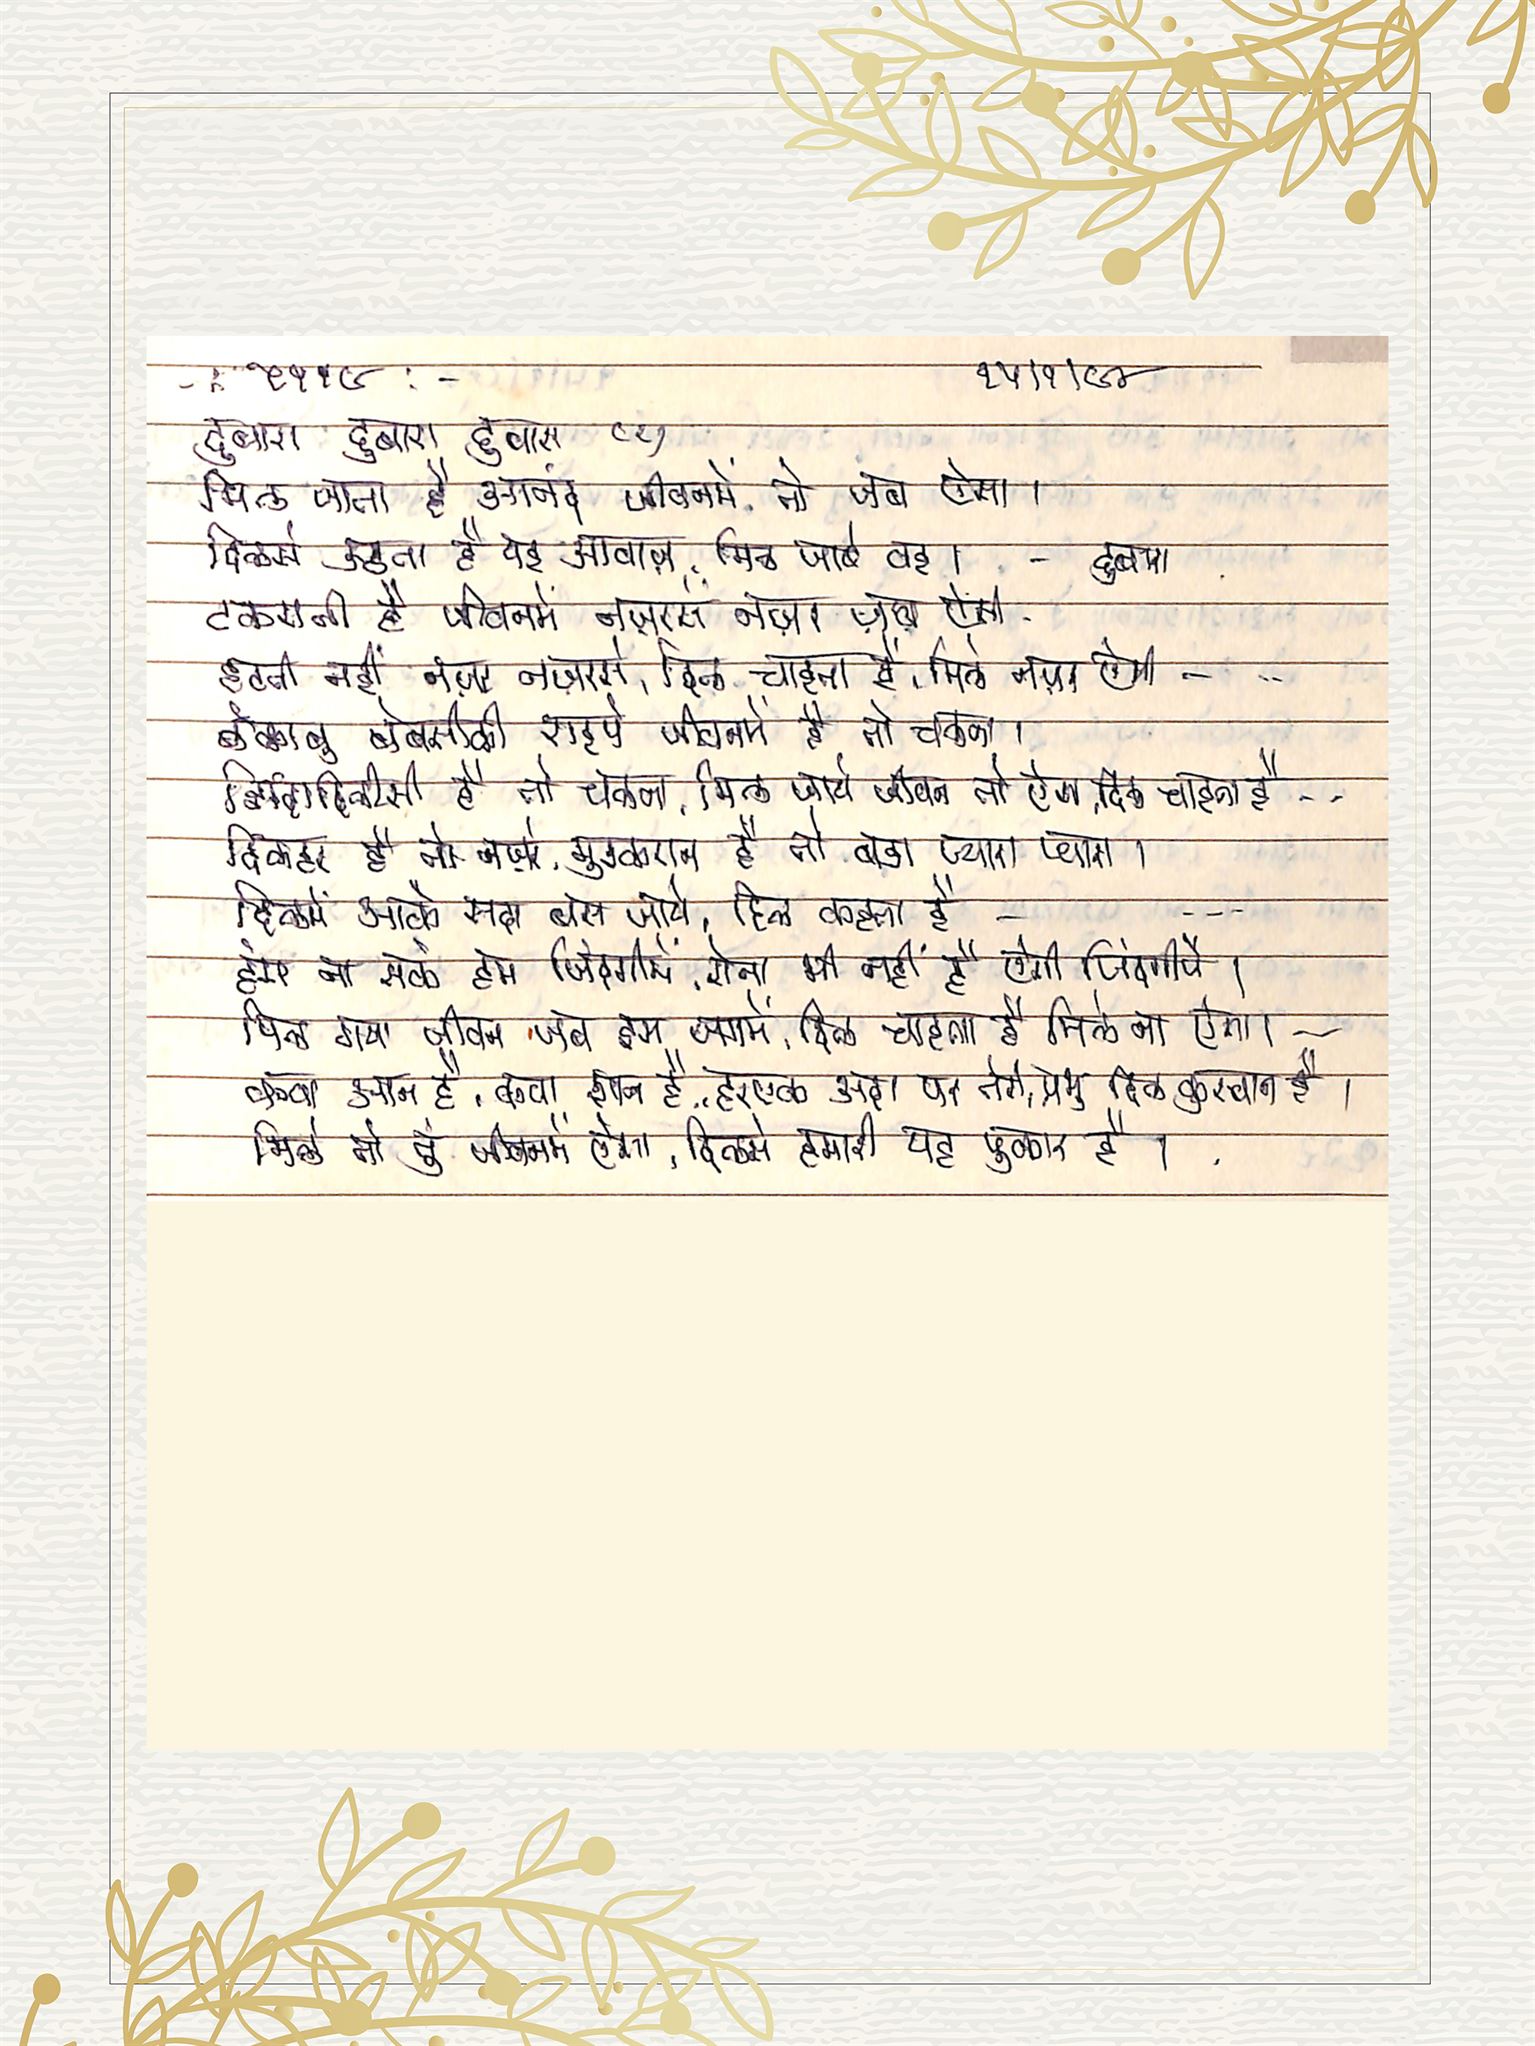 दुबारा दुबारा दुबारा (२)
मिल जाता है आनंद जीवनमें तो जब ऐसा।
दिलसे उठता है यह आवाज़, मिल जाये वह। - दुबारा
टकराती है जीवनमें नज़रसे नज़र जब ऐसी -
हटती नहीं नज़र नज़रसे, दिल चाहता है, मिले नज़र ऐसी - --
बेकाबु बेबसीकी राहपे जीवनमें है तो चलना।
है तो चलना, मिल जाये जीवन तो ऐसा, दिल चाहता है --
है तो नज़रे, मुस्कराना है तो बड़ा प्यारा प्यारा।
दिलमें आके सदा बस जाये, दिल कहता है - ---
हँस ना सके हम जिंदगीमें, रोना भी नहीं है ऐसी जिंदगीपे।
मिल गया जीवन जब इस जगमें, दिल चाहता है मिले ना ऐसा। -
क्या आन है, क्या शान है, हरएक अदा पर तेरी, प्रभु दिल कुरबान है।
मिले तो तुं जीवनमें ऐसा, दिलसे हमारी यह पुकार है।